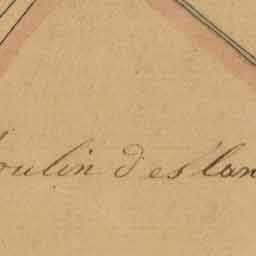 oulin d'es lan